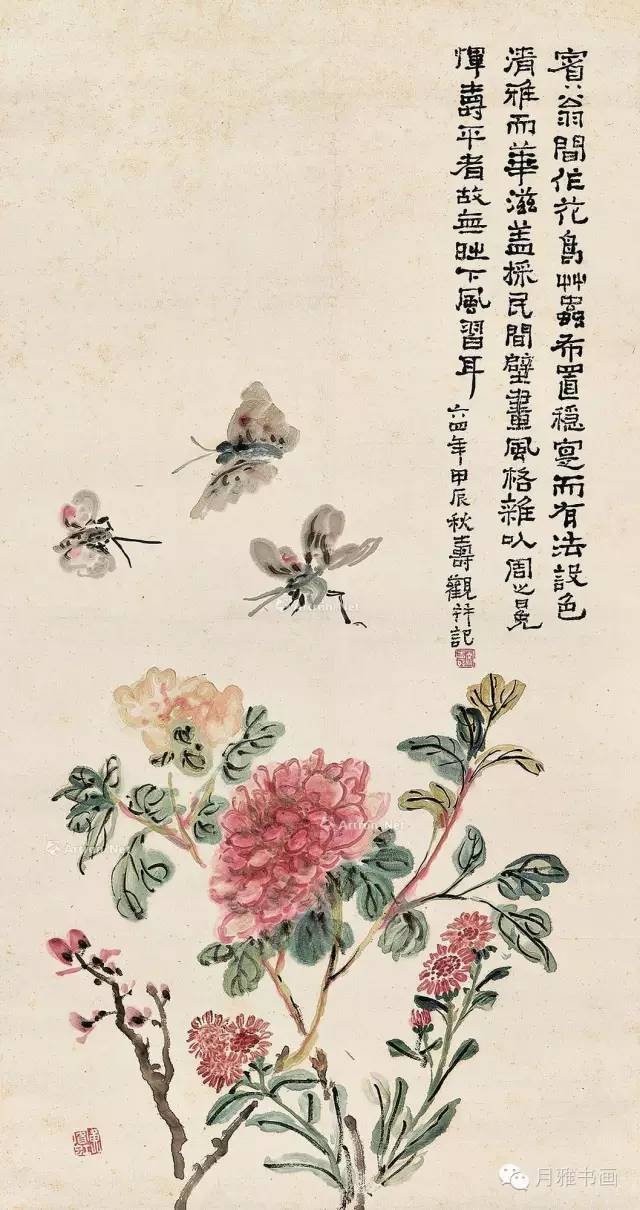 賓翁間作花鳥艸蟲布置穩寔而有法設色
清雅而華滋盖採民間壁畫風格雜以周之冕
惲壽平者故無時下風習耳 六四年甲辰秋壽觀并記
Artron.Net
Artron.Net
Artron.Net
Artron.Net
月雅书画